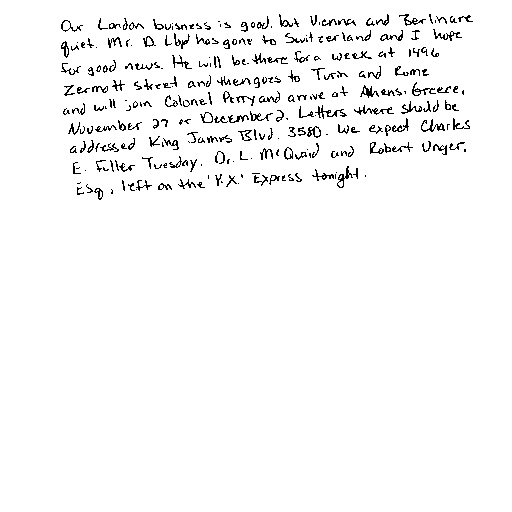 Our London buisness is good, but Vienna and Berlin are
quiet. Mr. D. Lloyd has gone to Switzerland and I hope
for good news. He will be there for a week at 1496
Zermott Street and then goes to Turin and Rome
and will join Colonel Perry and arrive at Athens, Greece,
November 27 or December 2. Letters there should be
addressed King James Blvd. 3580. We expect Charles
E. Fuller Tuesday. Dr. L. McQuaid and Robert Unger,
Esq., left on the 'Y.X.' Express tonight.